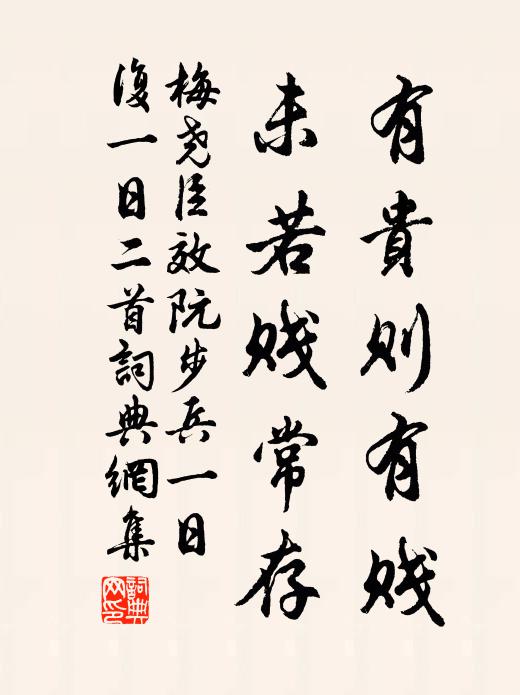 有貴则有贱
未若贱常存
梅尧臣效阮步兵一日
復一日二首詞典網集
詞典网印